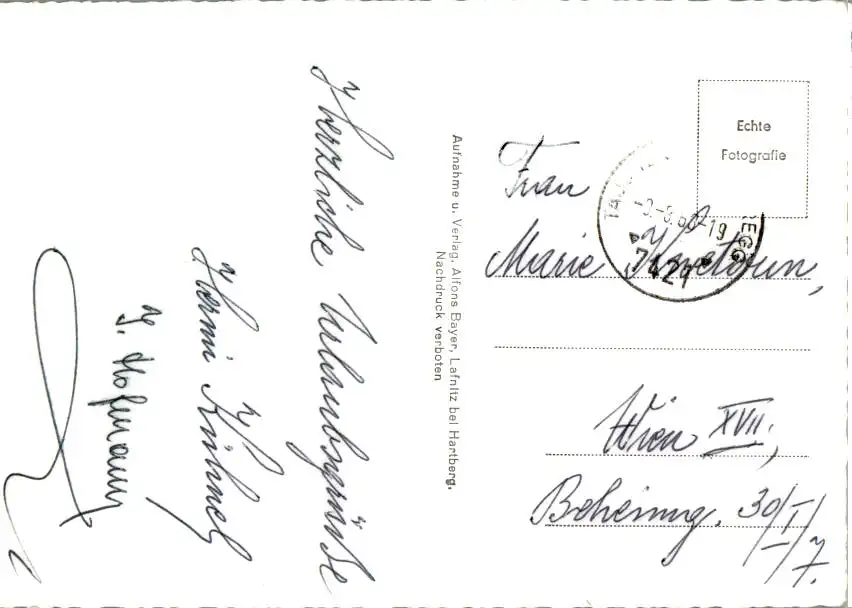 Herzliche Urlaubsgrüße
Hermi Kühnel
H. Hofmann
Aufnahme u. Verlag, Alfons Bayer, Lafnitz bei Hartberg.
Nachdruck verboten
Echte
Fotografie
7421
Frau
Marie
Wien XVII.,
30/I/7.